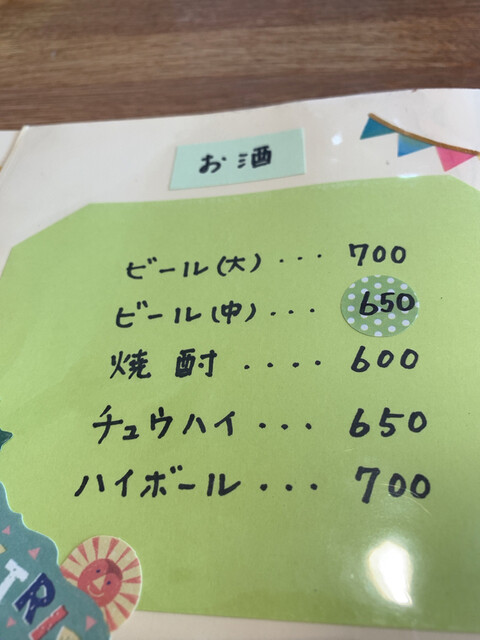 お酒
ビール(大)・・・700
ビール(中)・・・650
焼酎・・・・600
チュウハイ・・・650
ハイボール・・・700